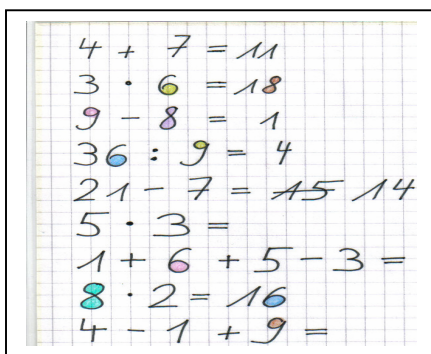 4 + 7 = 11
3 · 6 = 18
9 - 8 = 1
36 : 9 = 4
21 - 7 = 15 14
5 · 3 =
1 + 6 + 5 - 3 =
8 · 2 = 16
4 - 1 + 9 =